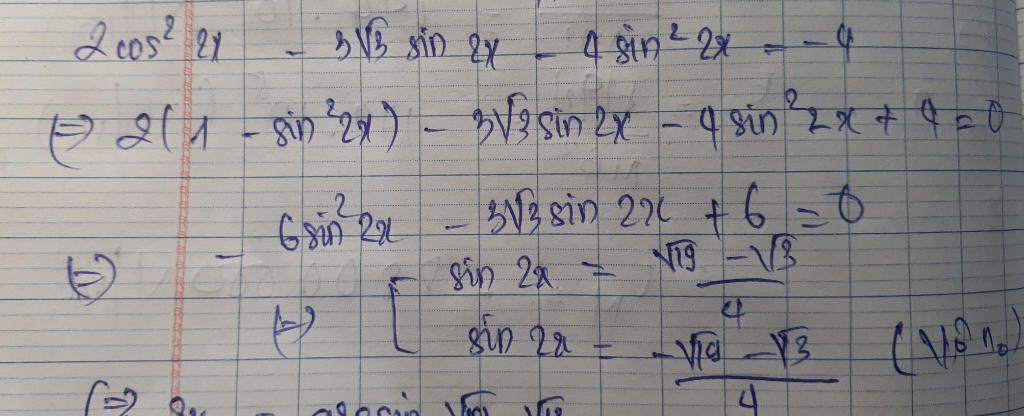 2cos² 2x - 3√3 sin 2x - 4 sin² 2x = -4
⇔ 2(1 - sin² 2x) - 3√3 sin 2x - 4 sin² 2x + 4 = 0
⇔ - 6 sin² 2x - 3√3 sin 2x + 6 = 0
⇔ [ sin 2x = (√19 - √3)/4
sin 2x = (-√19 - √3)/4 (Vô n0)
⇔ 2x = arcsin